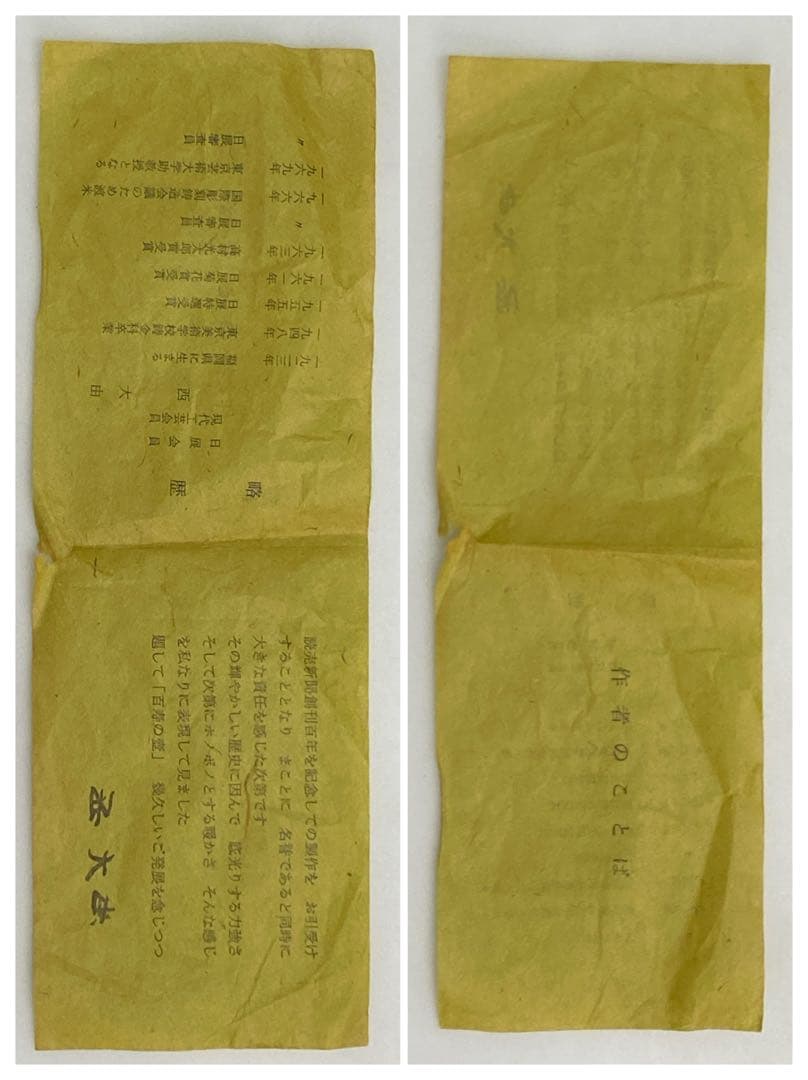 作者のことば
読売新聞創刊百年を記念しての製作を　お引受け
することとなり　まことに　名誉であると同時に
大きな責任を感じた次第です
その輝やかしい歴史に因んで　底光りする力強さ
そして次第にホノボノとする暖かさ　そんな感じ
を私なりに表現して見ました
題して「百寿の壺」　幾久しいご発展を念じつつ
西大由
略歴
日展会員
現代工芸会員
西大由
一九二三年　福岡県に生まる
一九四八年　東京美術学校鋳金科卒業
一九五五年　日展特選受賞
一九六一年　日展菊花賞受賞
一九六三年　高村光太郎賞受賞
〃　日展審査員
一九六六年　国際彫刻鋳造会議のため渡米
一九六九年　東京芸術大学助教授となる
〃　日展審査員